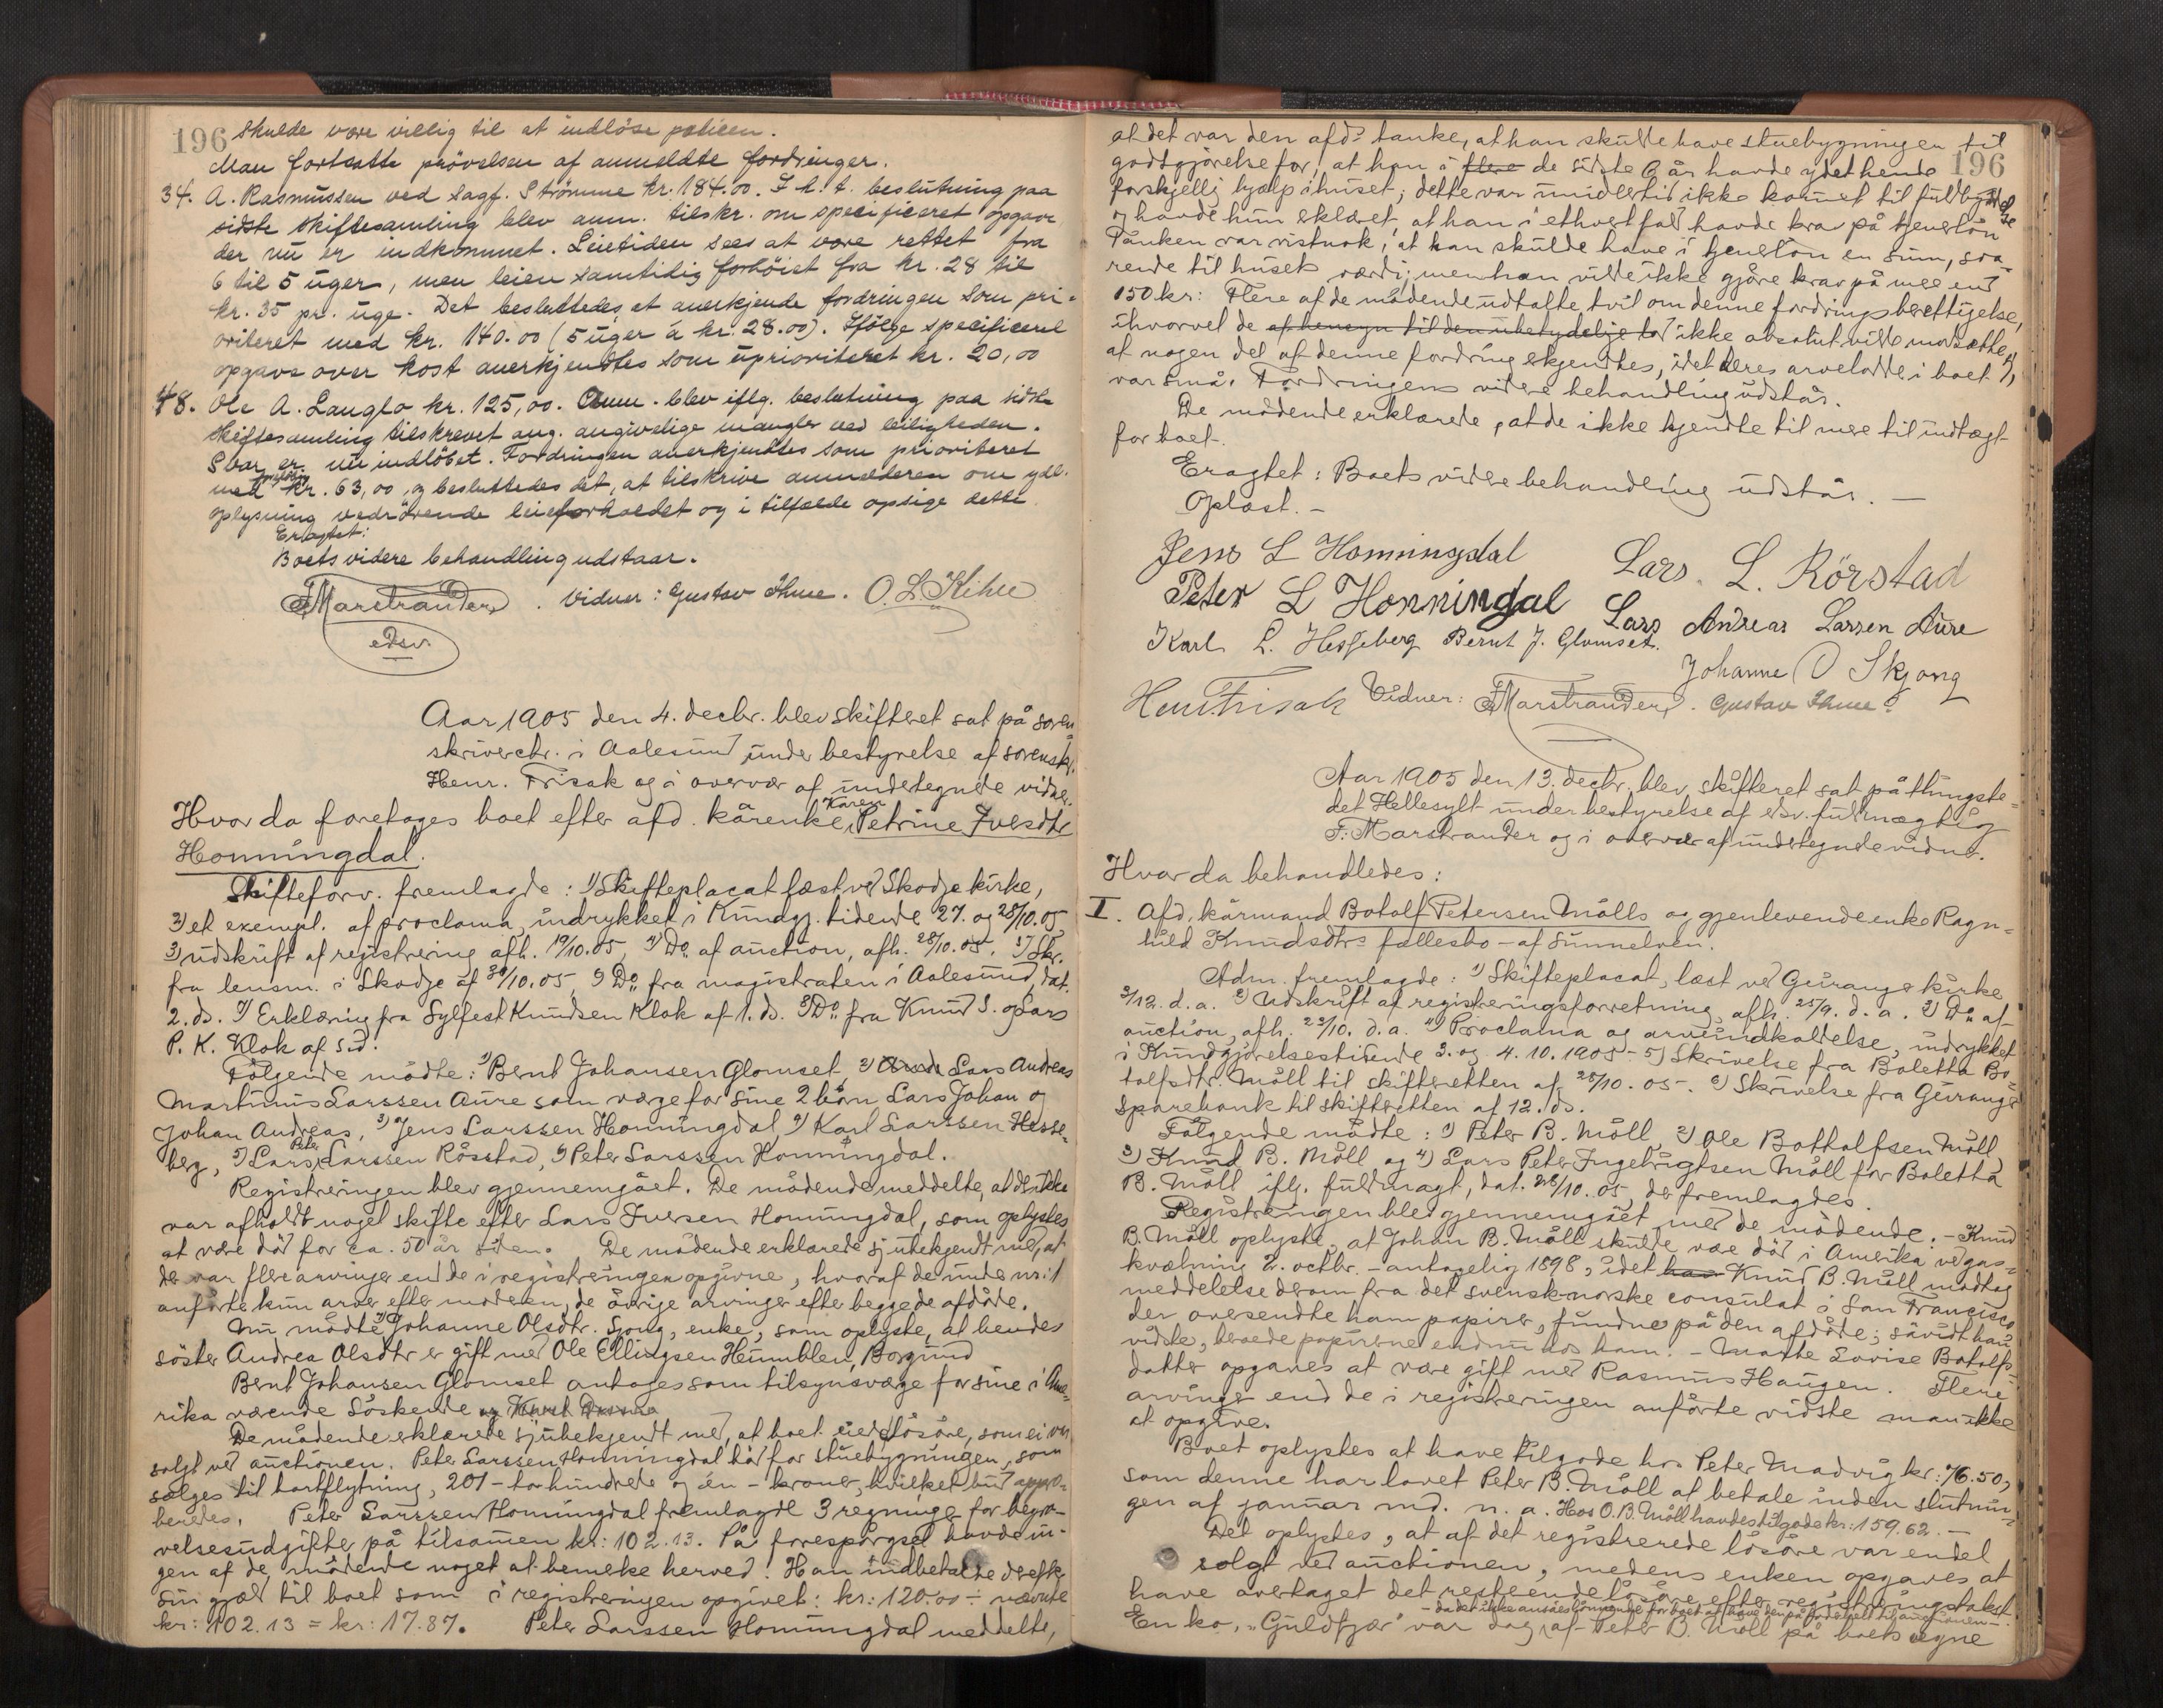 196 skulde være villig til at indløse policen.
Man fortsatte prøvelsen af anmeldte fordringer.
34. A. Rasmussen ved sagf. Strømme kr. 184.00. I h. t. beslutning paa
sidste skiftesamling blev anm. tilskr. om specificeret opgave
der nu er indkommet. Leietiden sees at være rettet fra
6 til 5 uger, men leien samtidig forhøiet fra kr. 28 til
kr. 35 pr. uge. Det besluttedes at anerkjende fordringen som pri-
oriteret med kr. 140.00 (5 uger à kr. 28.00). Ifølge specificeret
opgave over kost anerkjendtes som uprioriteret kr. 20,00
48. Ole A. Langlo kr. 125,00. Anm. blev iflg. beslutning paa sidste
skiftesamling tilskrevet ang. angivelige mangler ved leiligheden.
Svar er nu indløbet. Fordringen anerkjendtes som prioriteret
med kr. 63,00, og besluttedes det, at tilskrive anmelderen om ydl.
oplysning vedrørende leieforholdet og i tilfælde opsige dette.
Eragtet:
Boets videre behandling udstaar.
F Marstrander. Vidner: Gustav Ihme. O. L. Kihle
edsv.
Aar 1905 den 4. decbr. blev skifteret sat på soren-
skriverctr. i Aalesund under bestyrelse af sorenskr.
Henr. Frisak og i overvær af undertegnede vidner.
Hvor da foretoges boet efter afd. kårenke Karen Petrine Iversdtr
Honningdal.
Skifteforv. fremlagde: 1) Skifteplacat læst ved Skodje kirke,
2) et exempl. af proclama, indrykket i Kundgj. tidende 27. og 28/10.05,
3) udskrift af registrering afh. 19/10.05, 4) Do. af auction, afh. 28/10.05. 5) Skr.
fra lensm. i Skodje af 30/10.05, 6) Do. fra magistraten i Aalesund, dat.
2. ds. 7) Erklæring fra Sylfest Knudsen Klok af 1. ds. 8) Do. fra Knud S. og Lars
P. K. Klok af s.d.
Følgende mødte: 1) Bernt Johansen Glomset, 2) Lars Andreas
Martinus Larssen Aure som værge for sine 2 børn Lars Johan og
Johan Andreas, 3) Jens Larssen Honningdal, 4) Karl Larssen Hesse-
berg, 5) Lars Peter Larssen Rösstad, 6) Peter Larssen Honningdal.
Registreringen blev gjennemgået. De mødende meddelte, at der ikke
var afholdt noget skifte efter Lars Iversen Honningdal, som oplystes
at være död for ca. 50 år siden. De mødende erklærede sj ubekjendt med, at
der var flere arvinger end de i registreringen opgivne, hvoraf de under nr. 1
anførte kun arver efter moderen, de øvrige arvinger efter begge de afdøde.
Nu mødte 7) Johanne Olsdtr. Sjong, enke, som oplyste, at hendes
söster Andrea Olsdtr er gift med Ole Ellingsen Humblen, Borgund
Bernt Johansen Glomset antoges som tilsynsværge for sine i Ame-
rika værende söskende
De mødende erklærede sj ubekjendt med, at boet eiede løsøre, som ei var
solgt ved auctionen. Peter Larssen Honningdal bød for stuebygningen, som
sælges til bortflytning, 201 - tohundrede og én - kroner, hvilket bud appro-
beredes. Peter Larssen Honningdal fremlagde 3 regninger for begra-
velsesudgifter på tilsamen kr: 102.13. På forespørgsel havde in-
gen af de mødende noget at bemerke herved. Han indbetalte derefter
sin gjæld til boet som i registreringen opgivet: kr: 120.00 ÷ nævnte
kr: 102.13 = kr: 17.87. Peter Larssen Honningdal meddelte,
196
at det var den afd.s tanke, at han skulde have stuebygningen til
godtgjørelse for, at han i flere de sidste 6 år havde ydet hende
forskjellig hjælp i huset; dette var imidlertid ikke kommet til fuldbyrdelse
og havde hun erklæret, at han i ethvert fald havde krav på tjenerløn
Tanken var vistnok, at han skulde have i tjenerløn en sum, sva-
rende til husets værdi; men han vilde ikke gjøre krav på mere end
150 kr: Flere af de mødende udtalte tvil om denne fordrings berettigelse,
ihvorvel de af hensyn til den ubetydelige lod ikke absolut vilde modsætte sj,
at nogen del af denne fordring erkjendtes, idet deres arvelodde i boet
var små. Fordringens videre behandling udstår.
De mødende erklærede, at de ikke kjendte til mere til indtægt
for boet.
Eragtet: Boets videre behandling udstår. —
Oplæst. -
Jens L Honningdal
Lars. L. Rörstad
Peter L Honningdal
Lars Andreas Larsen Aure
Karl L. Hesseberg Bernt J. Glomset.
Johanne O Skjong
Henr. Frisak Vidner: F Marstrander. Gustav Ihme.
Aar 1905 den 13. decbr. blev skifteret sat på thingste-
det Hellesylt under bestyrelse af edsv. fuldmægtig
F. Marstrander og i overvær af undertegnede vidner.
Hvor da behandledes:
I. Afd. kårmand Botolf Petersen Mölls og gjenlevende enke Ragn-
hild Knudsdtrs fællesbo - af Sunnelven.
Adm. fremlagde: 1) Skifteplacat, læst ved Geiranger kirke
3/12. d.a. 2) Udskrift af registreringsforretning, afh. 25/9. d.a. 3) Do af
auction, afh. 23/10. d.a. 4) Proclama og arveindkaldelse, indrykket
i Kundgjørelsestidende 3. og 4.10.1905 - 5) Skrivelse fra Boletta Bo-
tolfsdtr. Möll til skifteretten af 28/10.05 -. 6) Skrivelse fra Geiranger
sparebank til skifteretten af 12. ds.
Følgende mødte: 1) Peter B. Möll, 2) Ole Bottolfsen Möll,
3) Knud B. Möll og 4) Lars Peter Ingebrigtsen Möll for Boletta
B. Möll iflg. fuldmagt, dat. 28/10.05, der fremlagdes.
Registreringen blev gjennemgået med de mødende. - Knud
B. Möll oplyste, at Johan B. Möll skulde være död i Amerika ved gas-
kvælning 2. octbr. - antagelig 1898, idet Knud B. Möll modtog
meddelelse derom fra det svensk-norske consulat i San Francisco
der oversendte ham papirer, fundne på den afdøde; såvidt han
vidste, beroede papirerne endnu hos ham. - Marthe Lovise Botolfs-
datter opgaves at være gift med Rasmus Haugen. Flere
arvinger end de i registreringen anførte vidste man ikke
at opgive.
Boet oplystes at have tilgode hos Peter Madvig kr: 76.50,
som denne har lovet Peter B. Möll at betale inden slutnin-
gen af januar md. n. a. Hos O. B. Möll havdes tilgode kr: 159.62. —
Det oplystes, at af det registrerede løsøre var endel
solgt ved auctionen, medens enken opgaves at
have overtaget det resterende løsøre efter registreringstakst.
En ko, "Guldfjær" var dog af Peter B. Möll på boets vegne